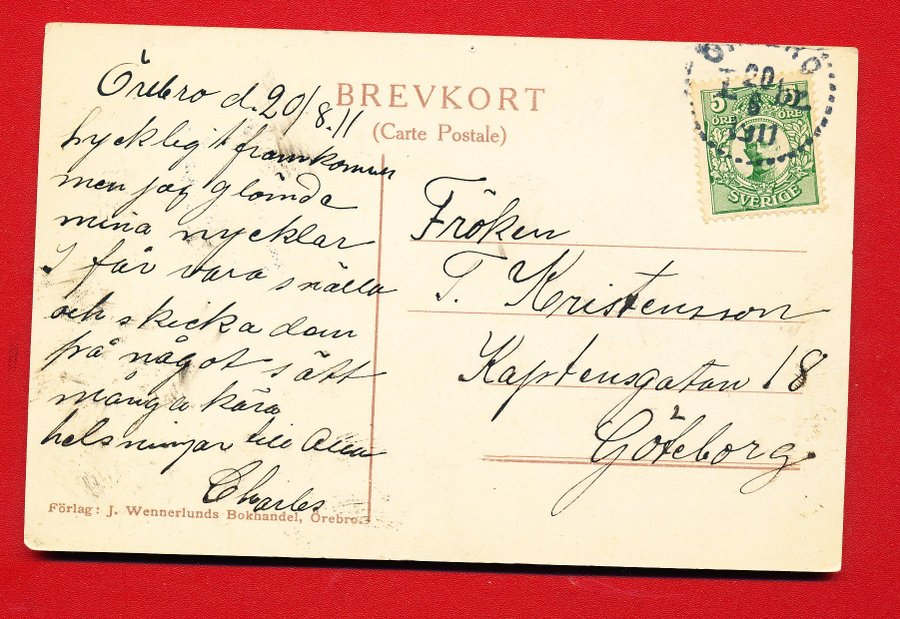 Örebro d. 20/8.11
BREVKORT
(Carte Postale)
Lyckligit framkommen
men jag glömde
mina nycklar
I får vara snälla
och skicka dem
på något sätt
många kära
helsningar till Alla
Charles
Förlag: J. Wennerlunds Bokhandel, Örebro.
ÖREBRO
20
8
1911
5
ÖRE
ÖRE
SVERIGE
Fröken
T. Kristensson
Kaptensgatan 18
2
Göteborg.